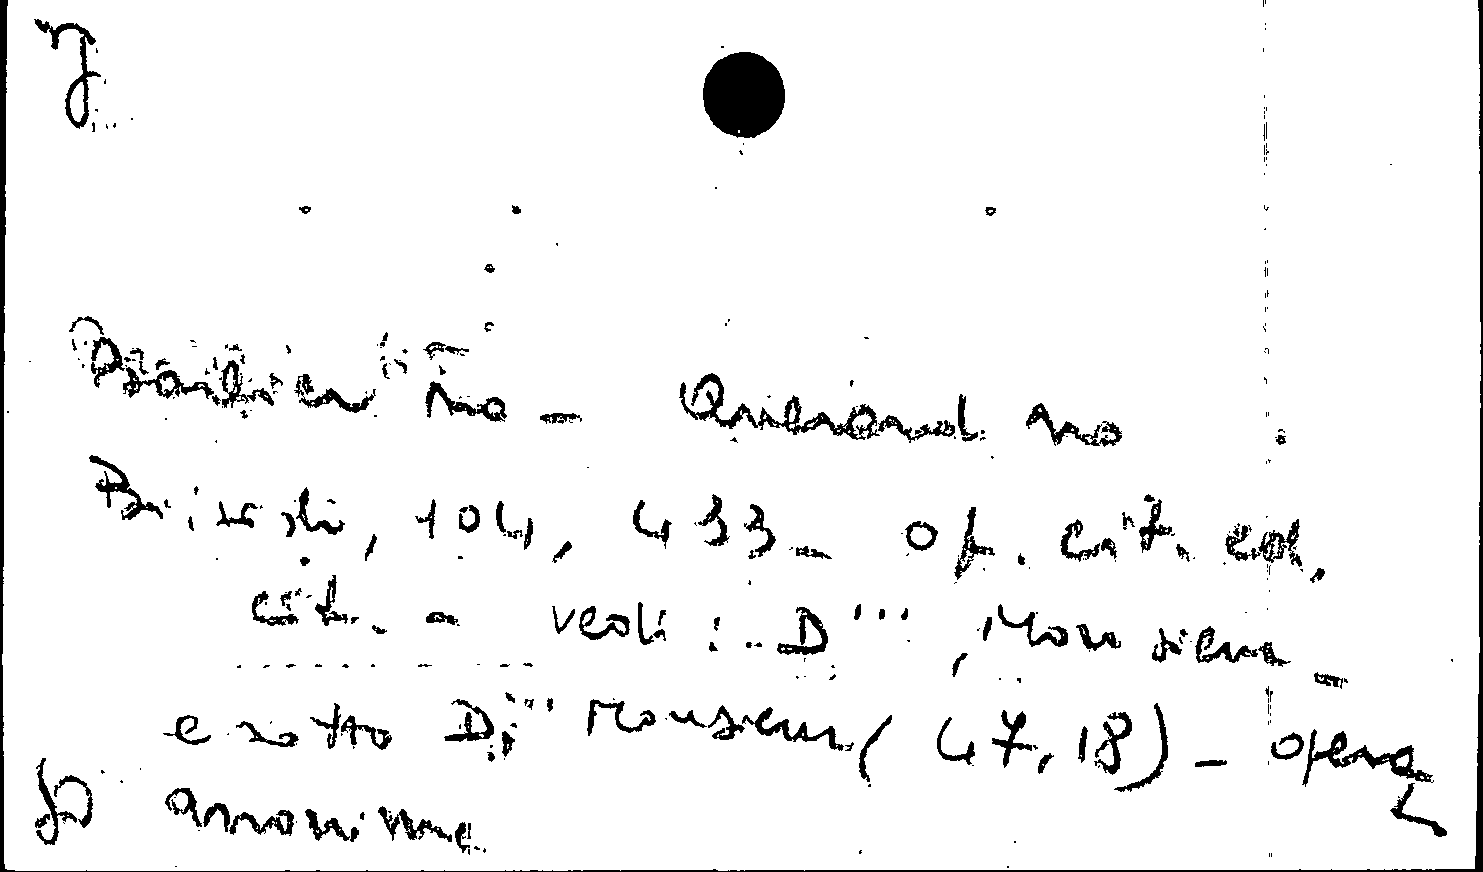 no - Querard no
104, 433 - op. cit. ed.
cit. - vedi: D''', Monsieur -
e sotto D''' Monsieur (47, 18) - opera
anonima